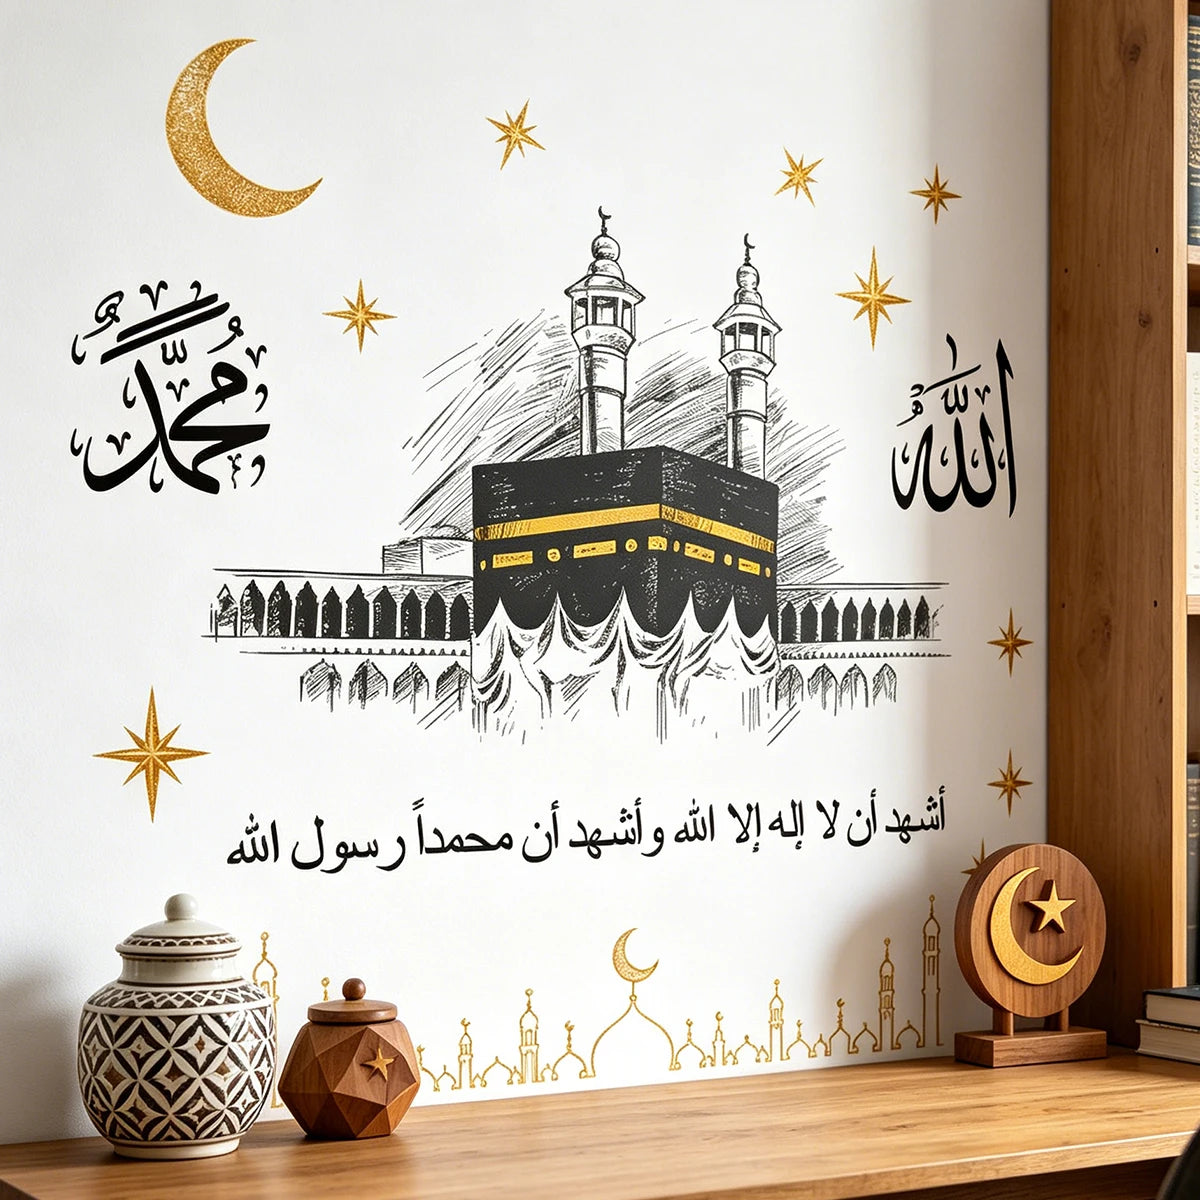 الله
محمد
أشهد أن لا إله إلا الله وأشهد أن محمداً رسول الله